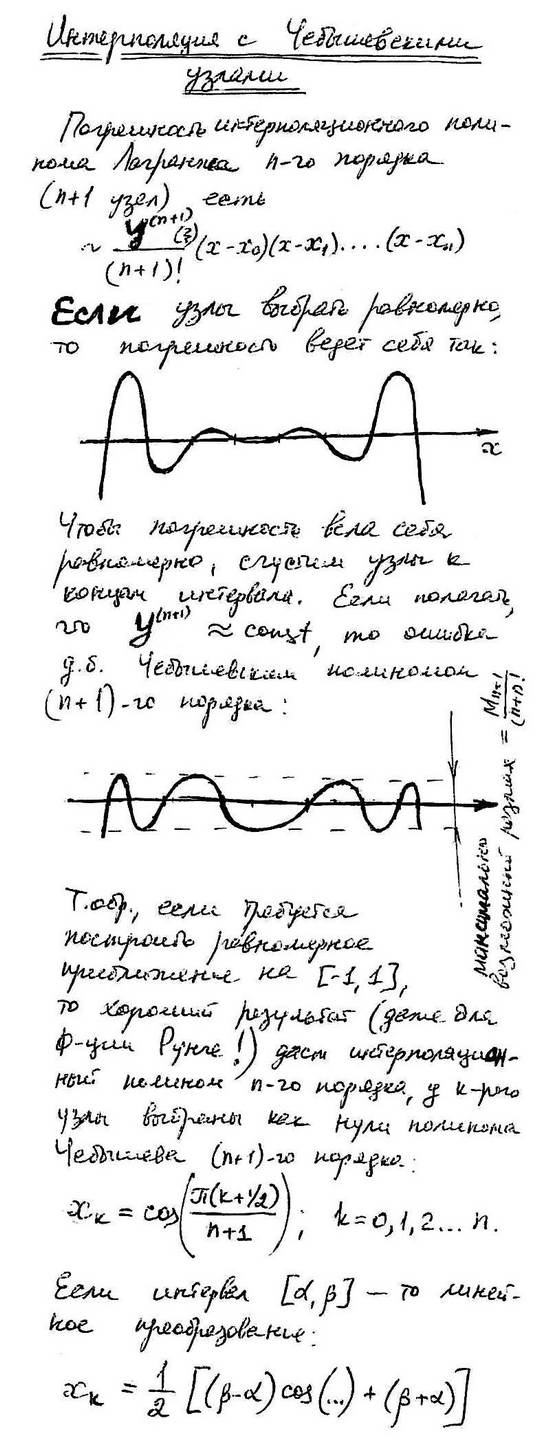 Интерполяция с Чебышевскими
узлами
Погрешность интерполяционного поли-
нома Лагранжа n-го порядка
(n+1 узел) есть
~ y^(n+1)(ξ)/(n+1)! (x-x₀)(x-x₁)....(x-xₙ)
Если узлы выбрать равномерно,
то погрешность ведет себя так:
x
Чтобы погрешность вела себя
равномерно, сгустим узлы к
концам интервала. Если полагать,
что y^(n+1) ≈ const, то ошибка
д.б. Чебышевским полиномом
(n+1)-го порядка:
минимально
возможный размах = Mₙ₊₁/(n+1)!
Т.обр., если требуется
построить равномерное
приближение на [-1,1],
то хороший результат (даже для
ф-ции Рунге!) даст интерполяцион-
ный полином n-го порядка, у к-рого
узлы выбраны как нули полинома
Чебышева (n+1)-го порядка:
xₖ = cos(π(k+1/2)/(n+1)); k=0,1,2... n.
Если интервал [α,β] — то линей-
ное преобразование:
xₖ = 1/2 [(β-α)cos(...)+(β+α)]